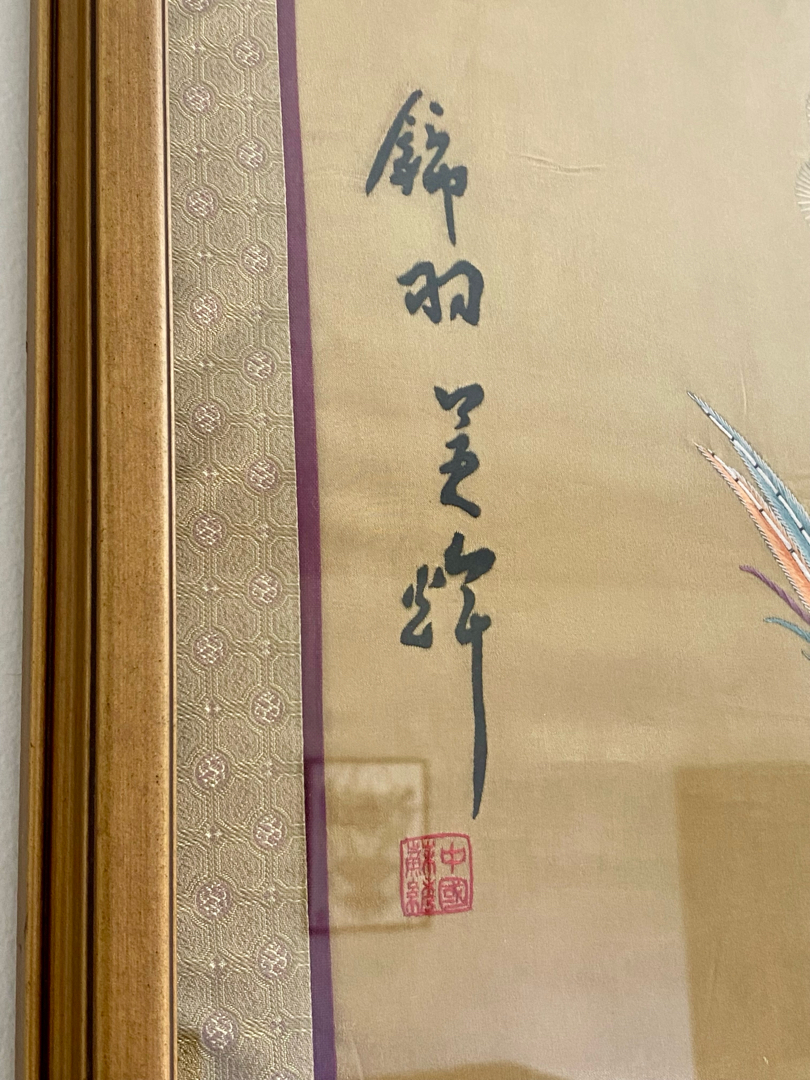 錦羽英輝
中國
蘇繡